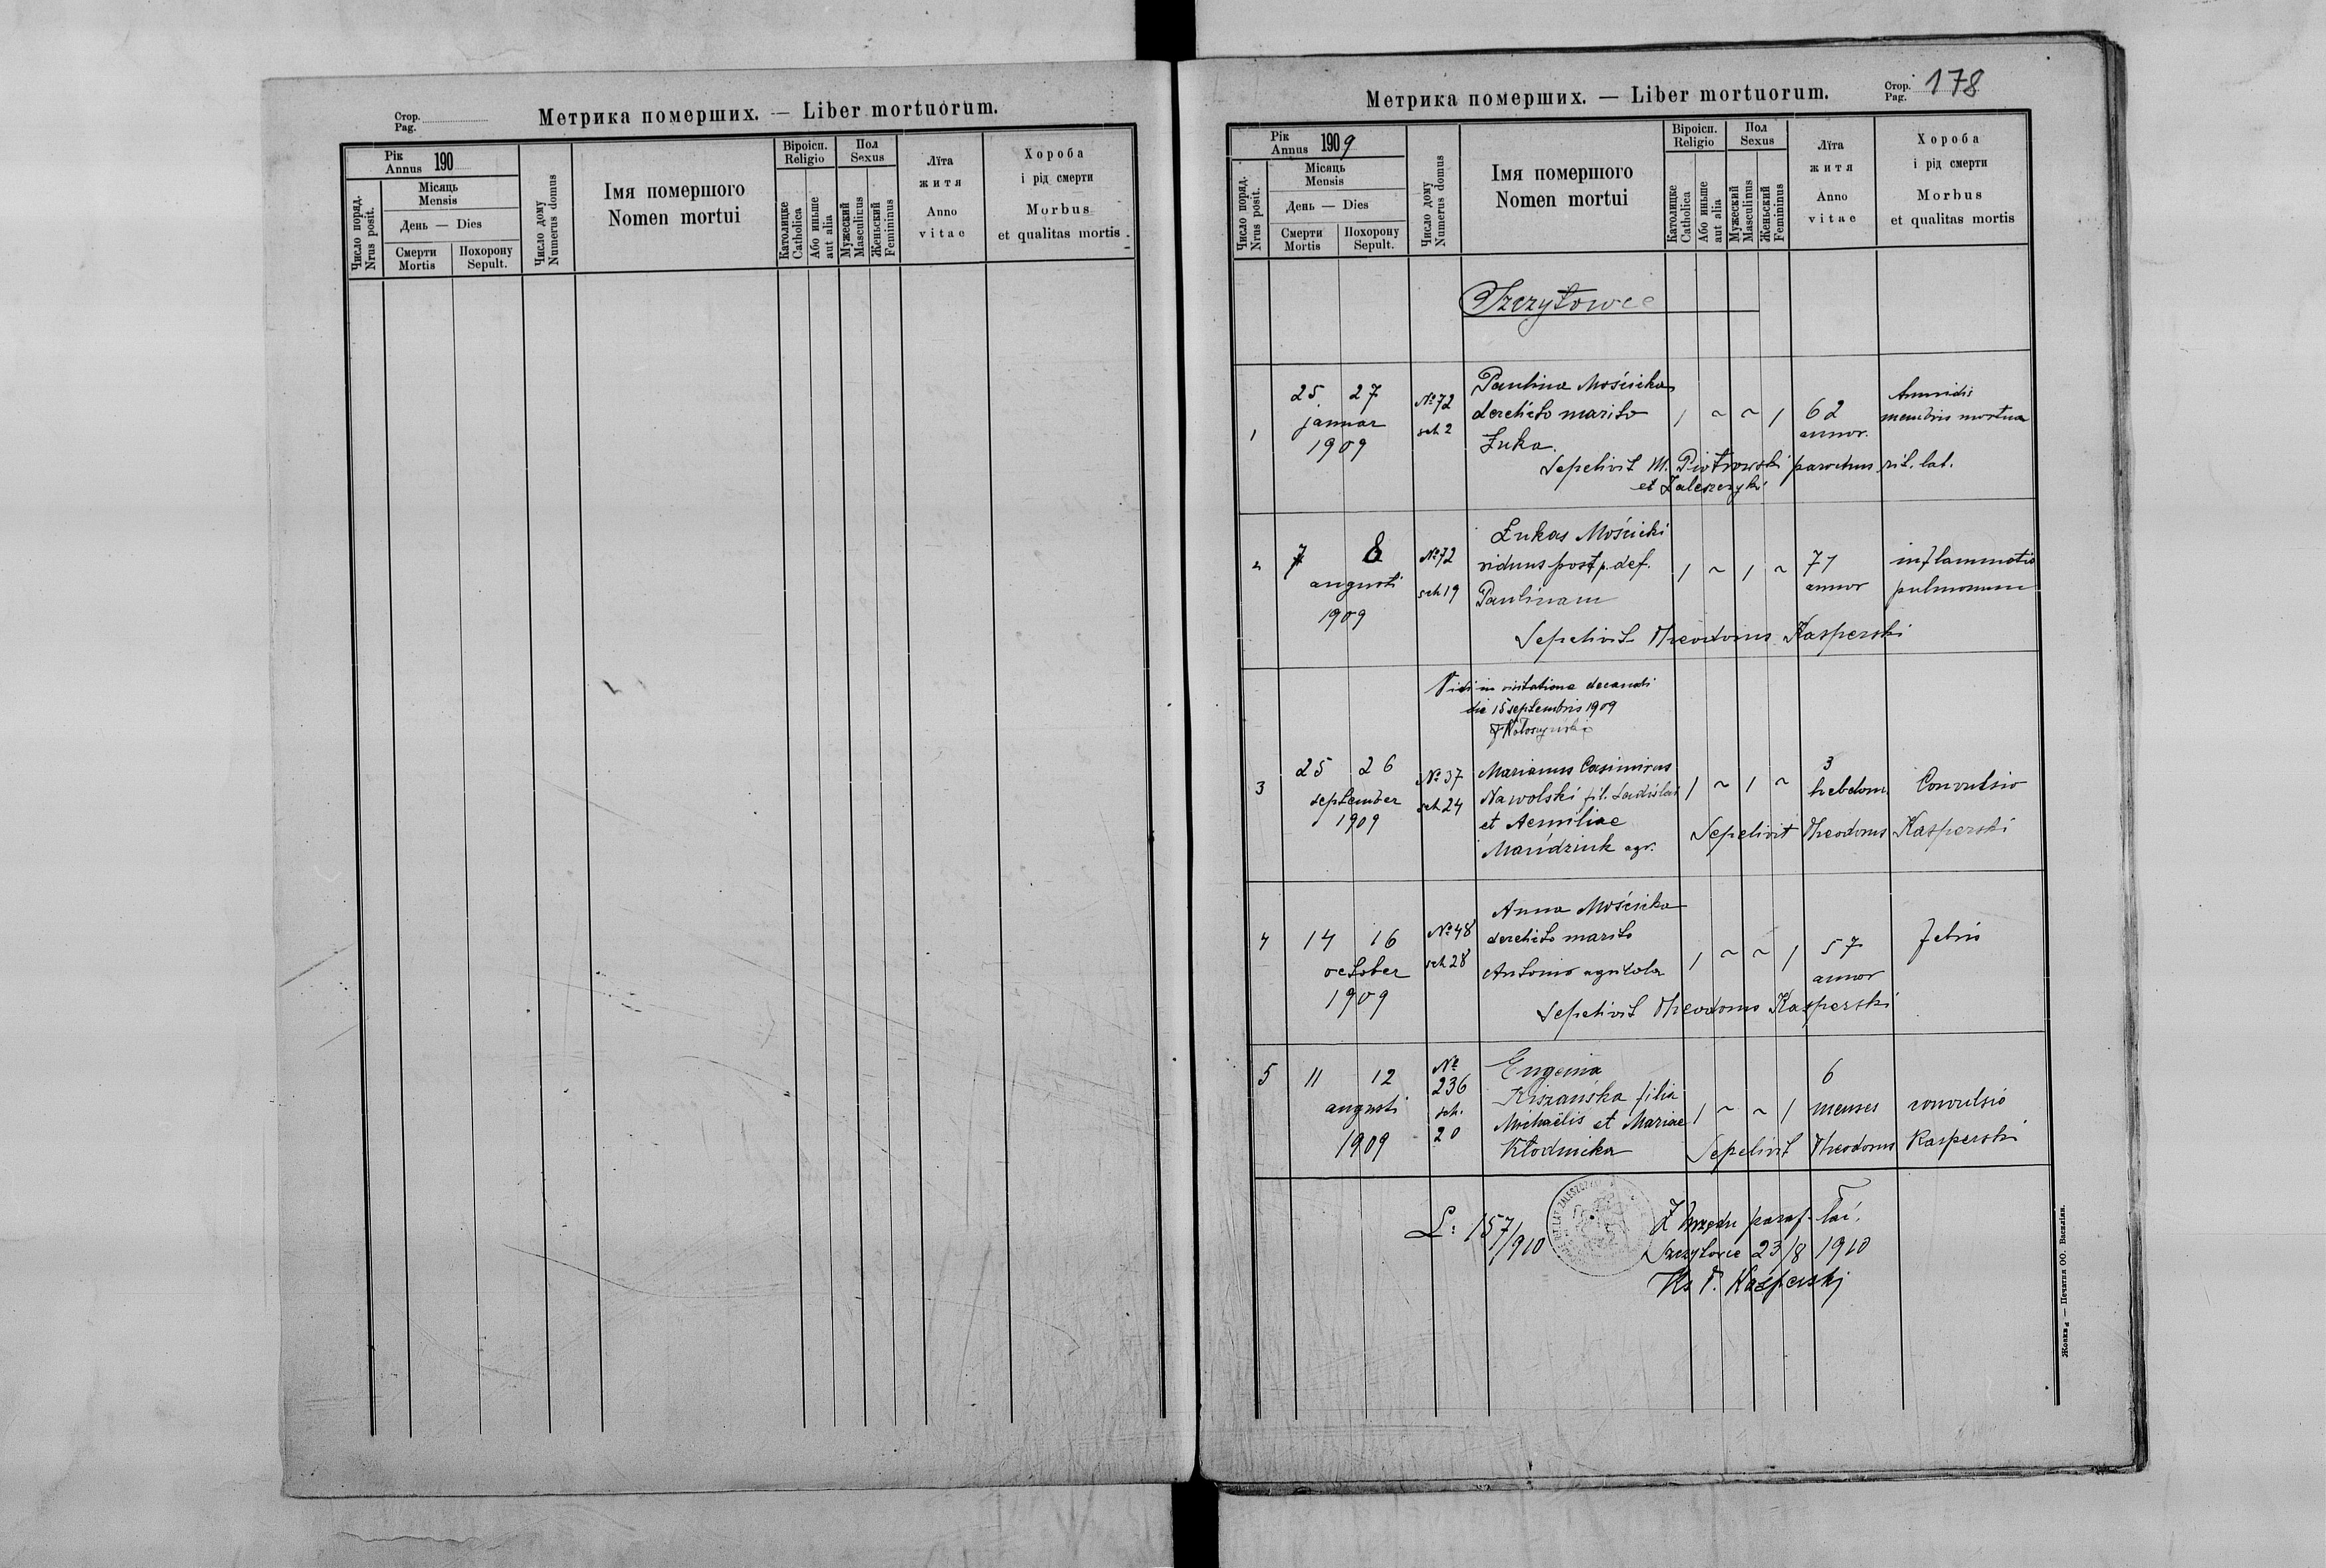 Стор.
Pag.
Метрика померших. — Liber mortuorum.
Рік
Annus 190
Місяць
Mensis
День — Dies
Число поряд.
Nrus posit.
Смерти
Mortis
Похорону
Sepult.
Число дому
Numerus domus
Імя помершого
Nomen mortui
Віроісп.
Religio
Католицке
Catholica
Або иньше
aut alia
Пол
Sexus
Мужеский
Masculinus
Женьский
Femininus
Лїта
житя
Anno
vitae
Хороба
і рід смерти
Morbus
et qualitas mortis
Метрика померших. — Liber mortuorum.
Стор.
Pag. 178
Рік
Annus 1909
Місяць
Mensis
День — Dies
Число поряд.
Nrus posit.
Смерти
Mortis
Похорону
Sepult.
Число дому
Numerus domus
Імя помершого
Nomen mortui
Віроісп.
Religio
Католицке
Catholica
Або иньше
aut alia
Пол
Sexus
Мужеский
Masculinus
Женьский
Femininus
Лїта
житя
Anno
vitae
Хороба
і рід смерти
Morbus
et qualitas mortis
Szczytowce
1
25 27
januar
1909
№ 72
sch 2
Paulina Mościcka
derelicto marito
Łuka.
1 ~ ~ 1
62
annor.
membris mortua
Sepelivit M. Piotrowski parochus rit. lat.
et Zaleszczyki
2
7 8
augusti
1909
№ 72
sch 19
Łukas Mościcki
viduus post p. def.
Paulinam
1 ~ 1 ~
71
annor
inflammatio
pulmonum
Sepelivit Theodorus Kasperski
Vidi in visitatione decanali
die 15 septembris 1909
3
25 26
september
1909
№ 37
sch 24
Marianus Casimirus
Nawolski fil. Ladislai
et Aemiliae
Marúdziuk agr.
1 ~ 1 ~
3
hebdom.
Convulsio
Sepelivit Theodorus Kasperski
4
14 16
october
1909
№ 48
sch 28
Anna Mościcka
derelicto marito
Antonio agricola
1 ~ ~ 1
57
annor
febris
Sepelivit Theodorus Kasperski
5
11 12
augusti
1909
№
236
sch.
20
Eugenia
Kiszańska filia
Michaëlis et Mariae
Kłodnicka
1 ~ ~ 1
6
menses
convulsio
Sepelivit Theodorus Kasperski
L: 157/910
Z Urzędu paraf. łać.
Szczytowce 23/8 1910
Ks T. Kasperski
Жовква — Печатня ОО. Василіян.